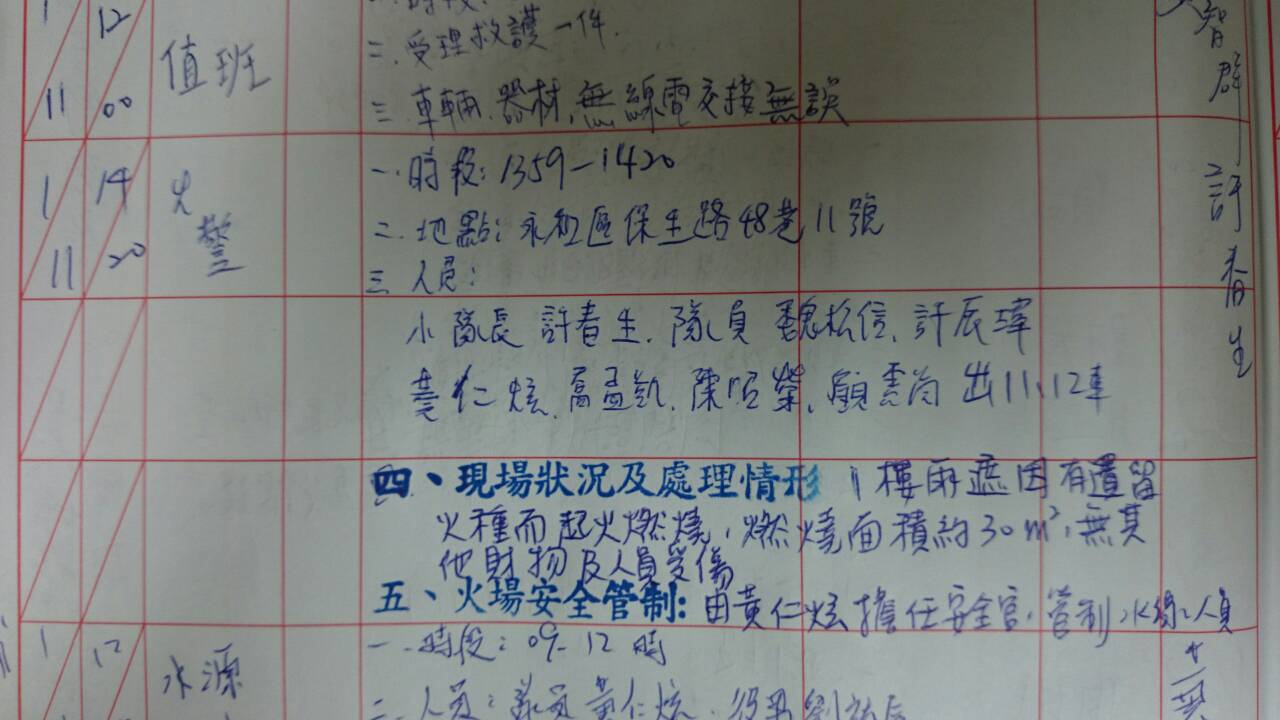 1 12
11 00
值班
二.受理救護一件.
三.車輛.器材.無線電交接無誤
1 14
11 20
火警
一.時段:1359-1420
二.地點:永和區保生路48巷11號
三.人員:
小隊長 許春生.隊員 魏松信.許辰瑋
黃仁炫.高孟凱.陳 榮.顧 出11、12車
四、現場狀況及處理情形 1樓雨遮因有遺留
火種而起火燃燒,燃燒面積約30m²,無其
他財物及人員受傷
五、火場安全管制:由黃仁炫擔任安全官.管制水線、人員
1 12
水源
一.時段:09-12時
二.人員: 黃仁炫.
智群
許春生